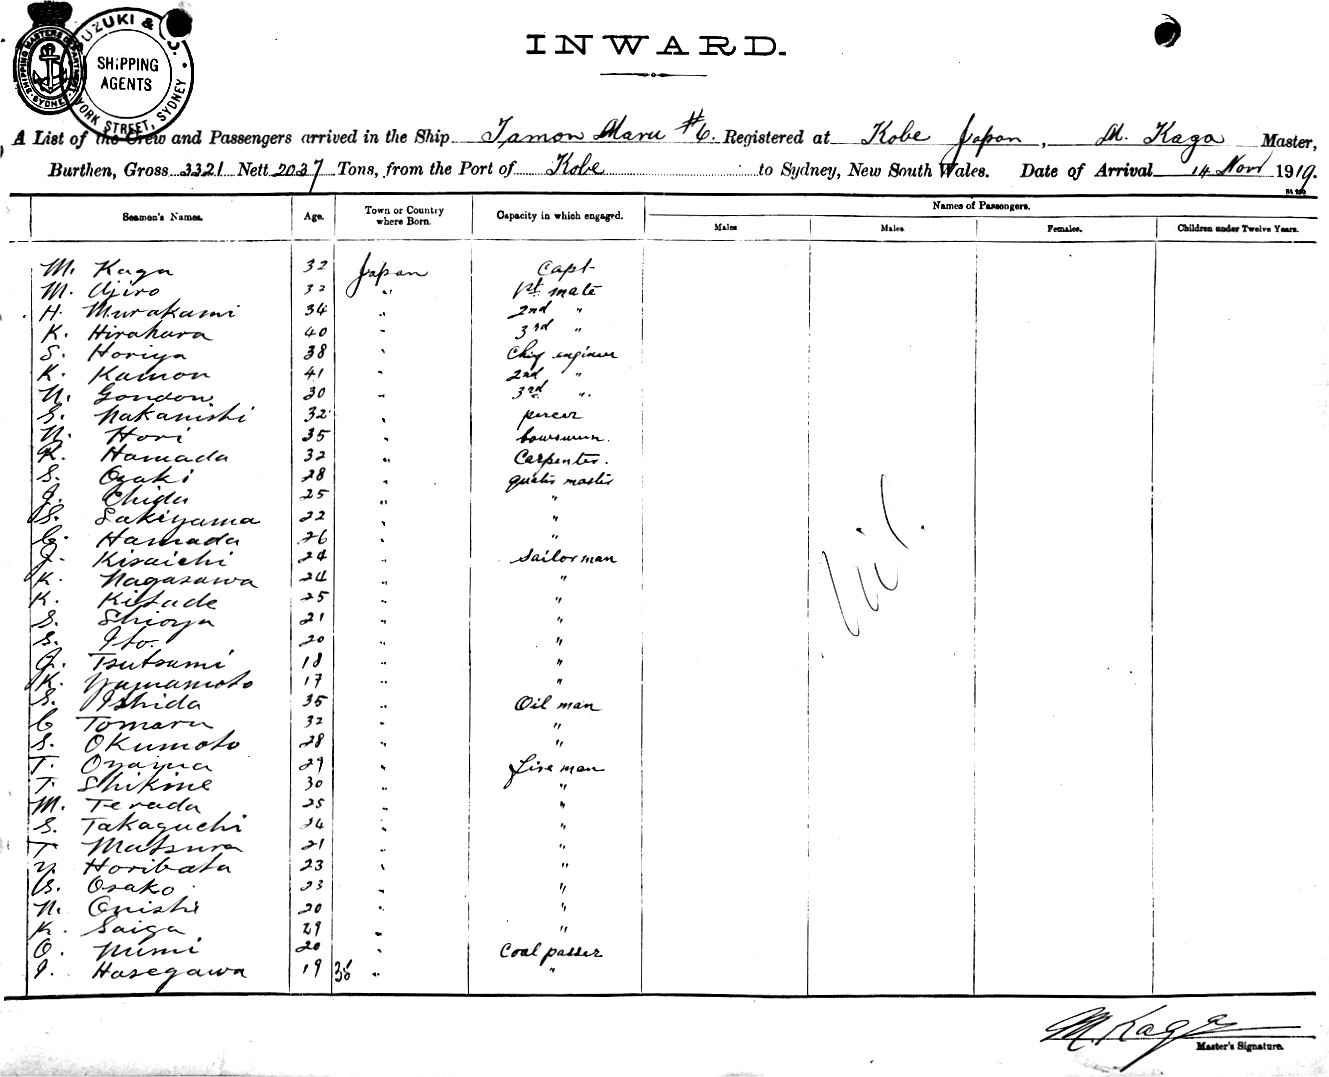 SUZUKI & CO.
SHIPPING
AGENTS
YORK STREET, SYDNEY
INWARD.
A List of the Crew and Passengers arrived in the Ship Tamon Maru #6. Registered at Kobe Japan, M. Kaga Master,
Burthen, Gross 3321 Nett 2037 Tons, from the Port of Kobe to Sydney, New South Wales. Date of Arrival 14 Nov 1919.
Seamen's Names. Age. Town or Country where Born. Capacity in which engaged. Names of Passengers.
Males Males. Females. Children under Twelve Years.
M. Kaga 32 Japan Capt
M. Ajiro 32 " 1st mate
H. Murakami 34 " 2nd "
K. Hirahara 40 " 3rd "
S. Horiya 38 " Chief engineer
K. Kamon 41 " 2nd "
N. Gondon 30 " 3rd "
S. Nakanishi 32 " purcer
N. Hori 35 " bowswun.
K. Hamada 32 " Carpenter.
S. Ozaki 28 " quater master
J. Chida 25 " "
S. Sakiyama 22 " "
C. Hamada 26 " "
J. Kisaichi 24 " Sailor man
K. Nagasawa 24 " "
K. Kitade 25 " "
S. Shioya 21 " "
S. Ito. 20 " "
J. Tsutsumi 18 " "
K. Yamamoto 17 " "
S. Ishida 35 " Oil man
C Tomaru 32 " "
S. Okumoto 28 " "
T. Oyama 29 " fire man
T. Shikine 30 " "
M. Terada 25 " "
S. Takaguchi 24 " "
T Matsura 21 " "
Y. Horibata 23 " "
G. Osako 23 " "
N. Onishi 20 " "
K. Saiga 29 " "
O. Mimi 20 " Coal passer
I. Hasegawa 19 35 " "
Nil.
M. Kaga
Master's Signature.